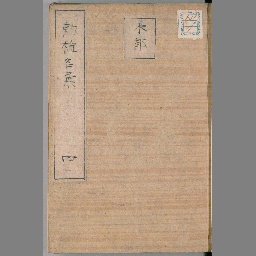 木部
動植名彙 四